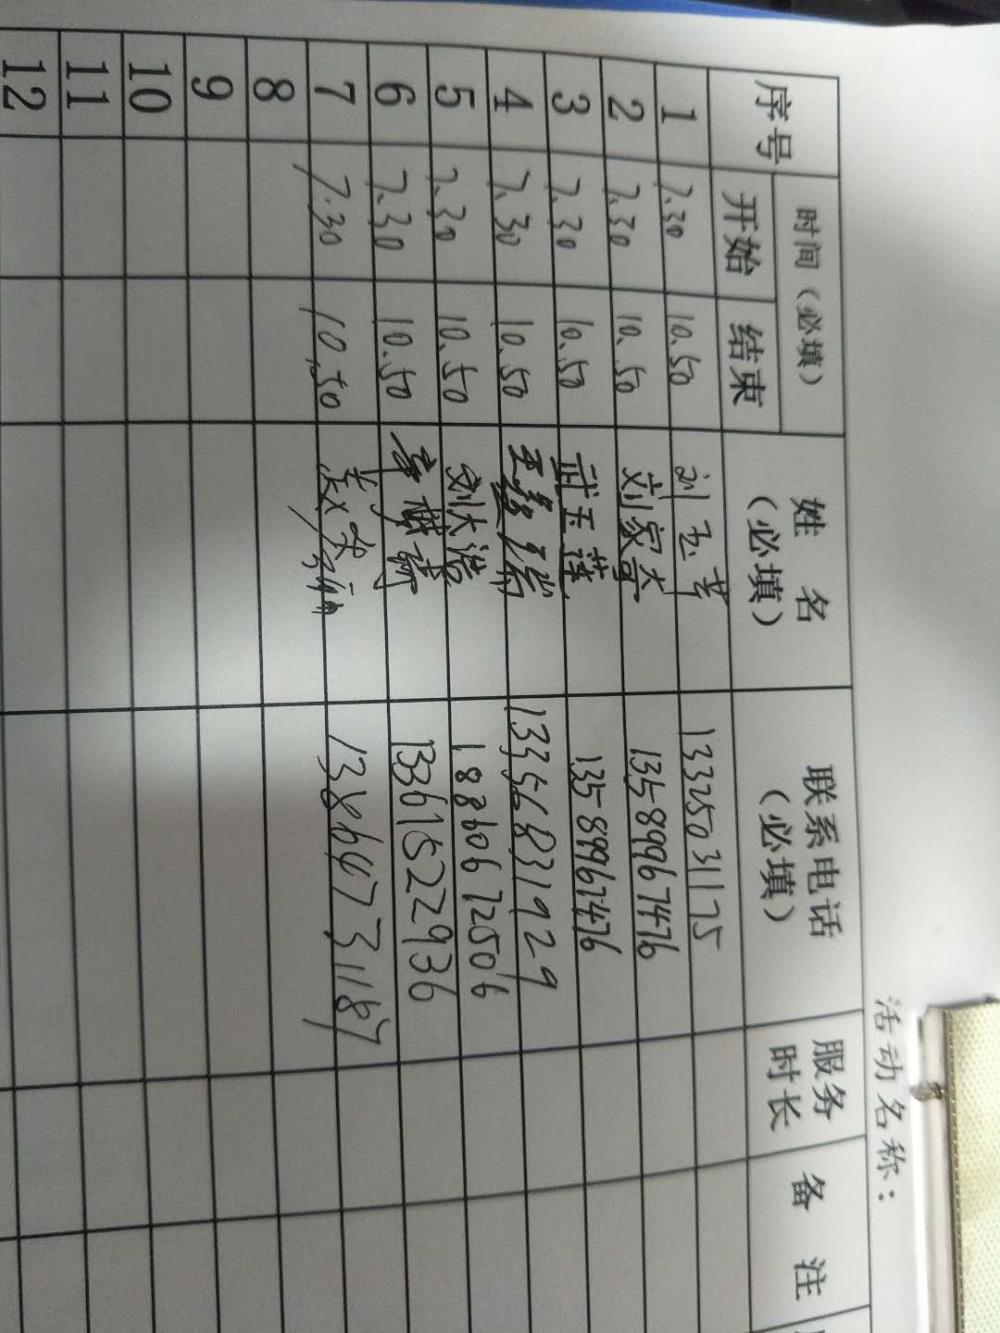 活动名称：
序号 时间（必填） 姓 名（必填） 联系电话（必填） 服务时长 备 注
开始 结束
1 7.30 10.50 刘玉苹 13325031175
2 7.30 10.50 刘家 13589967476
3 7.30 10.50 武玉莲 13589967476
4 7.30 10.50 13356831929
5 7.30 10.50 刘大浩 18860672506
6 7.30 10.50 13361522936
7 7.30 10.50 13866731187
8
9
10
11
12